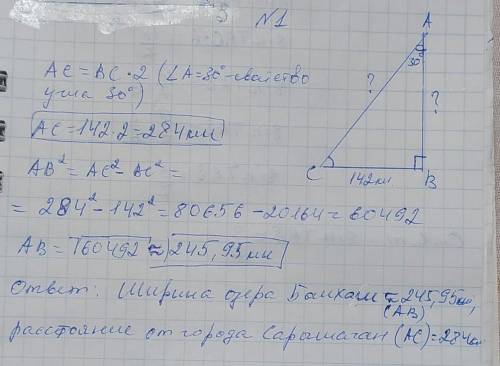 N1
AC = BC · 2 (∠A=30°-свойство
угла 30°)
AC = 142·2 = 284 км
AB² = AC² - BC² =
= 284² - 142² = 80656 - 20164 = 60492
AB = √60492 ≈ 245,95 км
Ответ: Ширина озера Балхаш ≈ 245,95км,
(AB)
расстояние от города Сарышаган (AC)=284км
A
30°
?
?
C
142км
B